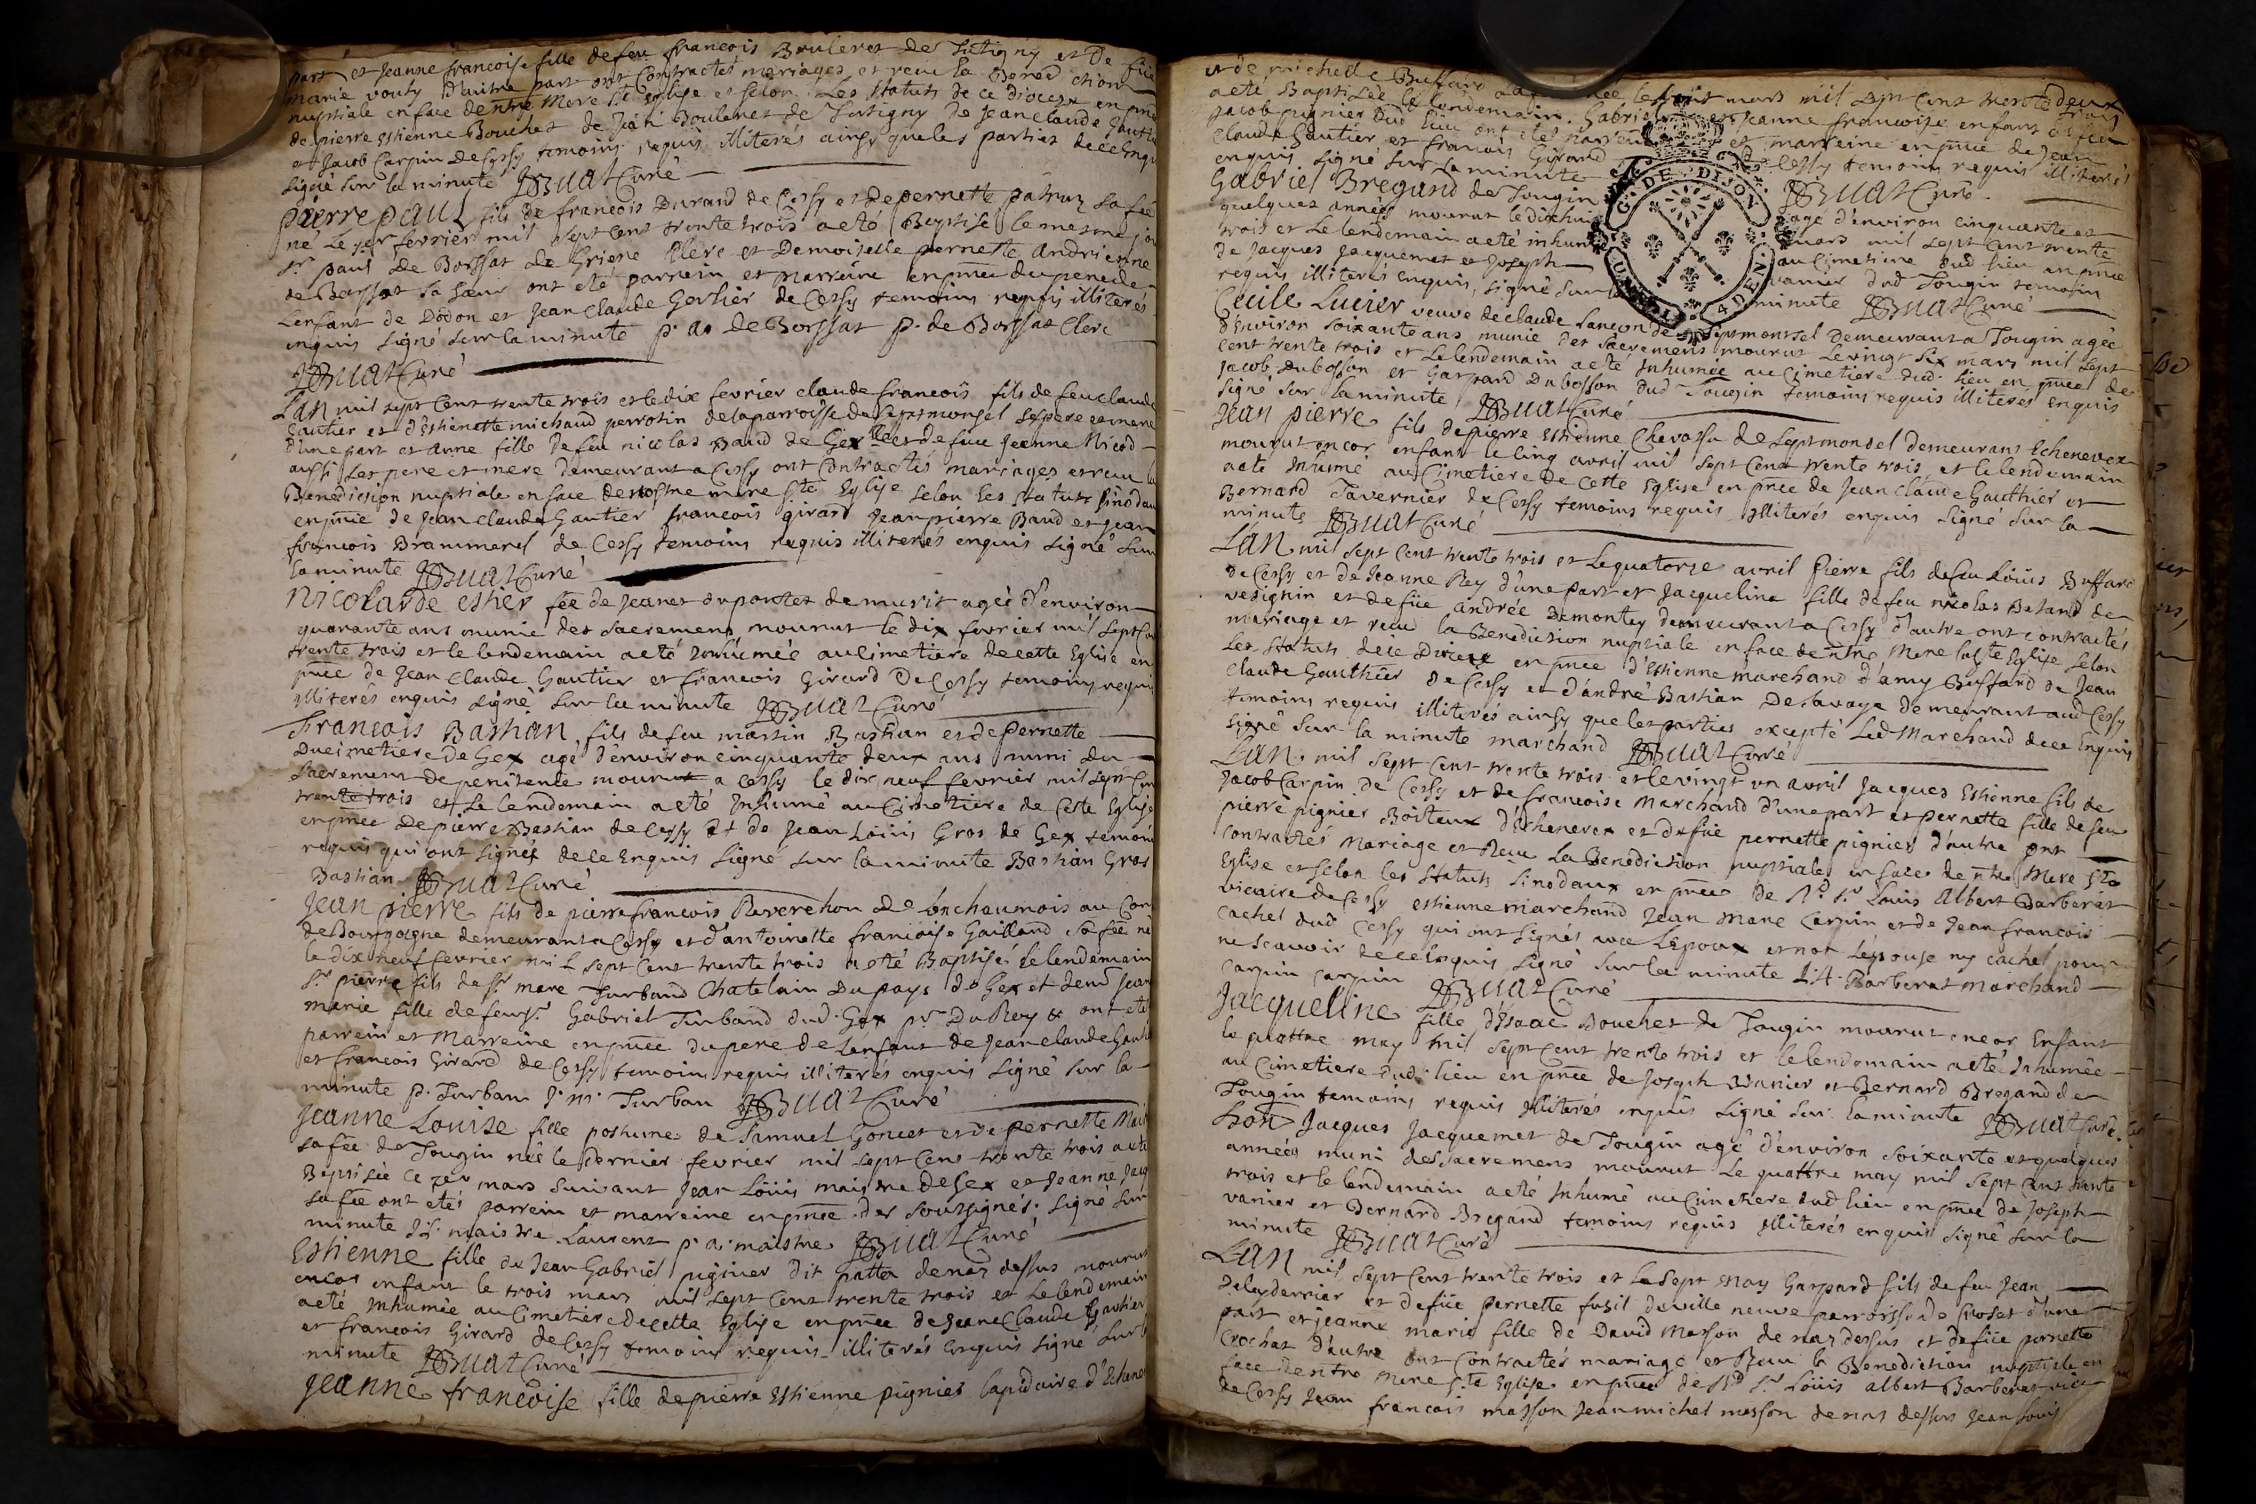 part et Jeanne francoise fille de feu francois Bruleret de Tutigny et de füe
marie vouty d'autre part ont Contractés mariages et recu la Bened ction
nuptiale en face de ntre Mere Ste Eglise et selon Les statuts de ce diocese en pnce
de pierre Estienne Bouchet de Jean Boulenet de Turtigny De Jean claude
et Jacob Carpin de Cessy temoins requis illiterés ainsy que les parties de ce enquis
signé sur la minute JBruat Curé
Pierre paul fils de francois Durand de Cessy et de pernette patruz sa fee
né Le 1er fevrier mil sept cent trente trois a eté Baptisé le mesme jour
Sr paul De Borssat de Clerc et Demoiselle pernette Andrienne
de Borssat sa soeur ont eté parrein et marraine en pnce du pere de
Lenfant de Dodon et Jean Claude Gortier de Cessy temoins requis illiterés
enquis signé sur la minute p. a. De Borssat p. de Borssat Clerc
JBruat Curé
Lan mil sept Cent trente trois et le dix fevrier claude francois fils de feu claude
Gautier et d'Estienette michaud perrotin de la parroisse de Septmonsel ses pere et mere
d'une part et anne fille de feu nicolas Baud de Gex et de füe Jeanne Nicod
aussi Les pere et mere demeurant a Cessy ont Contractés mariages et recu la
Benediction nuptiale en face de nostre mere Ste Eglise selon les statuts sinodaux
en pnce de Jean claude Gautier francois girard Jean pierre Baud et Jean
francois Brammerel de Cessy temoins requis illiterés enquis signé sur
la minute JBruat Curé
Nicolarde Estier fee de Jeanet dupontet de murit agée d'environ
quarante ans munie des sacremens mourut le dix fevrier mil sept Cent
trente trois et le lendemain a eté Inhumée au cimetiere de cette Eglise en
pnce de Jean claude Gautier et francois Girard De Cessy temoins requis
illiterés enquis signé sur la minute JBruat Curé
Francois Bastian fils de feu martin Bastian et de Pernette
Ducimetiere de Gex agé d'environ cinquante deux ans muni du
sacrement de penitence mourut a Cessy le dix neuf fevrier mil sept Cent
trente trois et Le lendemain a eté Inhumé au Cimetiere de Cette Eglise
en pnce De pierre Bastian de Cessy et de Jean Loüis Gros de Gex temoins
requis qui ont signés de ce Enquis signé sur la minute Bastian Gros
Bastian JBruat Curé
Jean pierre fils de pierre francois Reverchon de onchaumois au Comté
de Bourgogne demeurant a Cessy et d'antoinette francoise Gaillard sa fee né
le dix neuf fevrier mil sept cent trente trois a eté Baptisé le lendemain
Sr pierre fils de Sr marc Turband Chatelain Du pays de Gex et demlle Jeanne
marie fille de feu Sr Gabriel Turband dud. Gex pr Du Roy & ont eté
parrein et Marreine en pnce du pere de Lenfant de Jean claude Gautier
et francois Girard de Cessy temoins requis illiterés enquis signé sur la
minute p. Turban J. m. Turban JBruat Curé
Jeanne Louise fille postume de Samuel Goncet et de pernette
sa fee de Tougin née le dernier fevrier mil sept Cent trente trois a eté
Baptisée Ce 1er mars suivant Jean Loüis maistre de Gex et Jeanne
sa fee ont etés parrein et marreine en pnce des soussignés. signé sur
minute J.L. maistre Laurent p. a. maistre JBruat Curé
Estienne fille de Jean Gabriel piginier dit patta de naz dessus mourut
encor enfant le trois mars mil sept Cent trente trois et Le lendemain
a eté Inhumée au Cimetiere de cette Eglise en pnce de Jean Claude Gautier
et francois Girard de Cessy temoins requis illiterés enquis signé sur la
minute JBruat Curé
Jeanne francoise fille de pierre Estienne pignier lapidaire d'Echenevex
et de michelle Buffard mars mil sept Cent trente
a eté Baptisée Le lendemain. Gabriel et Jeanne francoise enfans de feu
Jacob pignier Dud lieu ont etés parrein et marreine en pnce de Jean
Claude Gautier et francois Girard de Cessy temoins requis illiterés
enquis signé sur la minute JBruat Curé.
Gabriel Bregand de Tougin agé d'environ cinquante et
quelques années mourut le dix huit mars mil sept Cent trente
trois et Le lendemain a eté inhumé au Cimetiere dud lieu en pnce
de Jacques Jacquemet et Joseph vanier dud Tougin temoins
requis illiterés enquis, signé sur la minute JBruat Curé
G. DE DIJON
4 DEN.
Cecile Lucier veuve de claude Lancon de Septmonssel Demeurant a Tougin agée
d'environ soixante ans munie des sacremens mourut Le vingt six mars mil sept
cent trente trois et Le lendemain a eté Inhumée au Cimetiere dud. lieu en pnce de
Jacob Dubosson et Gaspard Dubosson dud Tougin temoins requis illiterés enquis
signé sur la minute JBruat Curé
Jean pierre fils de pierre Estienne Chevassu de Septmonsel demeurant Echenevex
mourut encor enfant le cinq avril mil sept Cent trente trois et le lendemain
a eté Inhumé au Cimetiere de Cette Eglise en pnce de Jean Claude Gauthier et
Bernard Tavernier de Cessy temoins requis illiterés enquis signé sur la
minute JBruat Curé
Lan mil sept Cent trente trois et Le quatorze avril Pierre fils de feu Loüis Buffard
de Cessy et de Jeanne Rey d'une part et Jacqueline fille de feu nicolas Baland de
vesignin et de füe andrée Demontey demeurant a Cessy d'autre ont contractés
mariage et receu la Benediction nuptiale en face de ntre Mere la Ste Eglise selon
Les statuts de ce Diocese en pnce d'Estienne marchand d'amy Buffard de Jean
claude Gauthier de Cessy et d'andré Bastian De Savoye demeurant aud Cessy
temoins requis illiterés ainsy que les parties excepté Led Marchand de ce Enquis
signé sur la minute marchand JBruat Curé
Lan mil sept Cent trente trois et le vingt un avril Jacques Estienne fils de
Jacob Carpin de Cessy et de francoise Marchand d'une part et pernette fille de feu
pierre pignier Boiteux d'Echenevex et de füe pernette pignier d'autre ont
contractés Mariage et Receu La Benediction nuptiale en face de ntre Mere Ste
Eglise et selon les statuts sinodaux en pnce de Rd Sr Louis Albert Barberat
vicaire de Cessy estienne marchand Jean Marie Carpin et de Jean francois
Cachet dud Cessy qui ont signés avec Lépoux et non Lépouse ny cachet pour
ne scauvoir de ce enquis signé sur la minute L. A. Barberat marchand
Carpin Carpin JBruat Curé
Jacqueline fille d'Isaac Douchet de Tougin mourut encor Enfant
le quattre may mil sept Cent trente trois et le lendemain a eté Inhumée
au Cimetiere dud. lieu en pnce de Joseph Vanier et Bernard Bregand de
Tougin temoins requis illiterés enquis signé sur la minute JBruat Curé.
Hon Jacques Jacquemet de Tougin agé d'environ soixante et quelques
années muni des sacremens mourut Le quattre may mil sept Cent trente
trois et le lendemain a eté Inhumé au Cimetiere dud lieu en pnce de Joseph
vanier et Bernard Bregand temoins requis illiterés enquis signé sur la
minute JBruat Curé
Lan mil sept Cent trente trois et Le sept May Gaspard fils de feu Jean
Delayderrier et de füe Pernette fusil de ville neuve parroisse de Crozet d'une
part et jeanne marie fille de David Masson de naz dessus et de füe pernette
Crochat d'autre ont Contractés mariage et Receu la Benediction nuptiale en
face de ntre mere Ste Eglise en pnce de Rd Sr Loüis albert Barberat vic
de Cessy Jean francois masson Jean michel masson de naz dessus Jean Louis